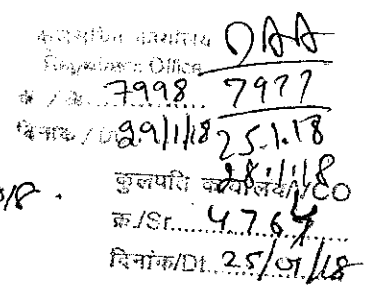 कुलसचिव कार्यालय DAA
Registrar's Office
क्र / Sr. 7998 7977
दिनांक / Dt 29/1/18 25.1.18
कुलपति कार्यालय/VCO
क्र./Sr. 4764
दिनांक/Dt. 25/01/18